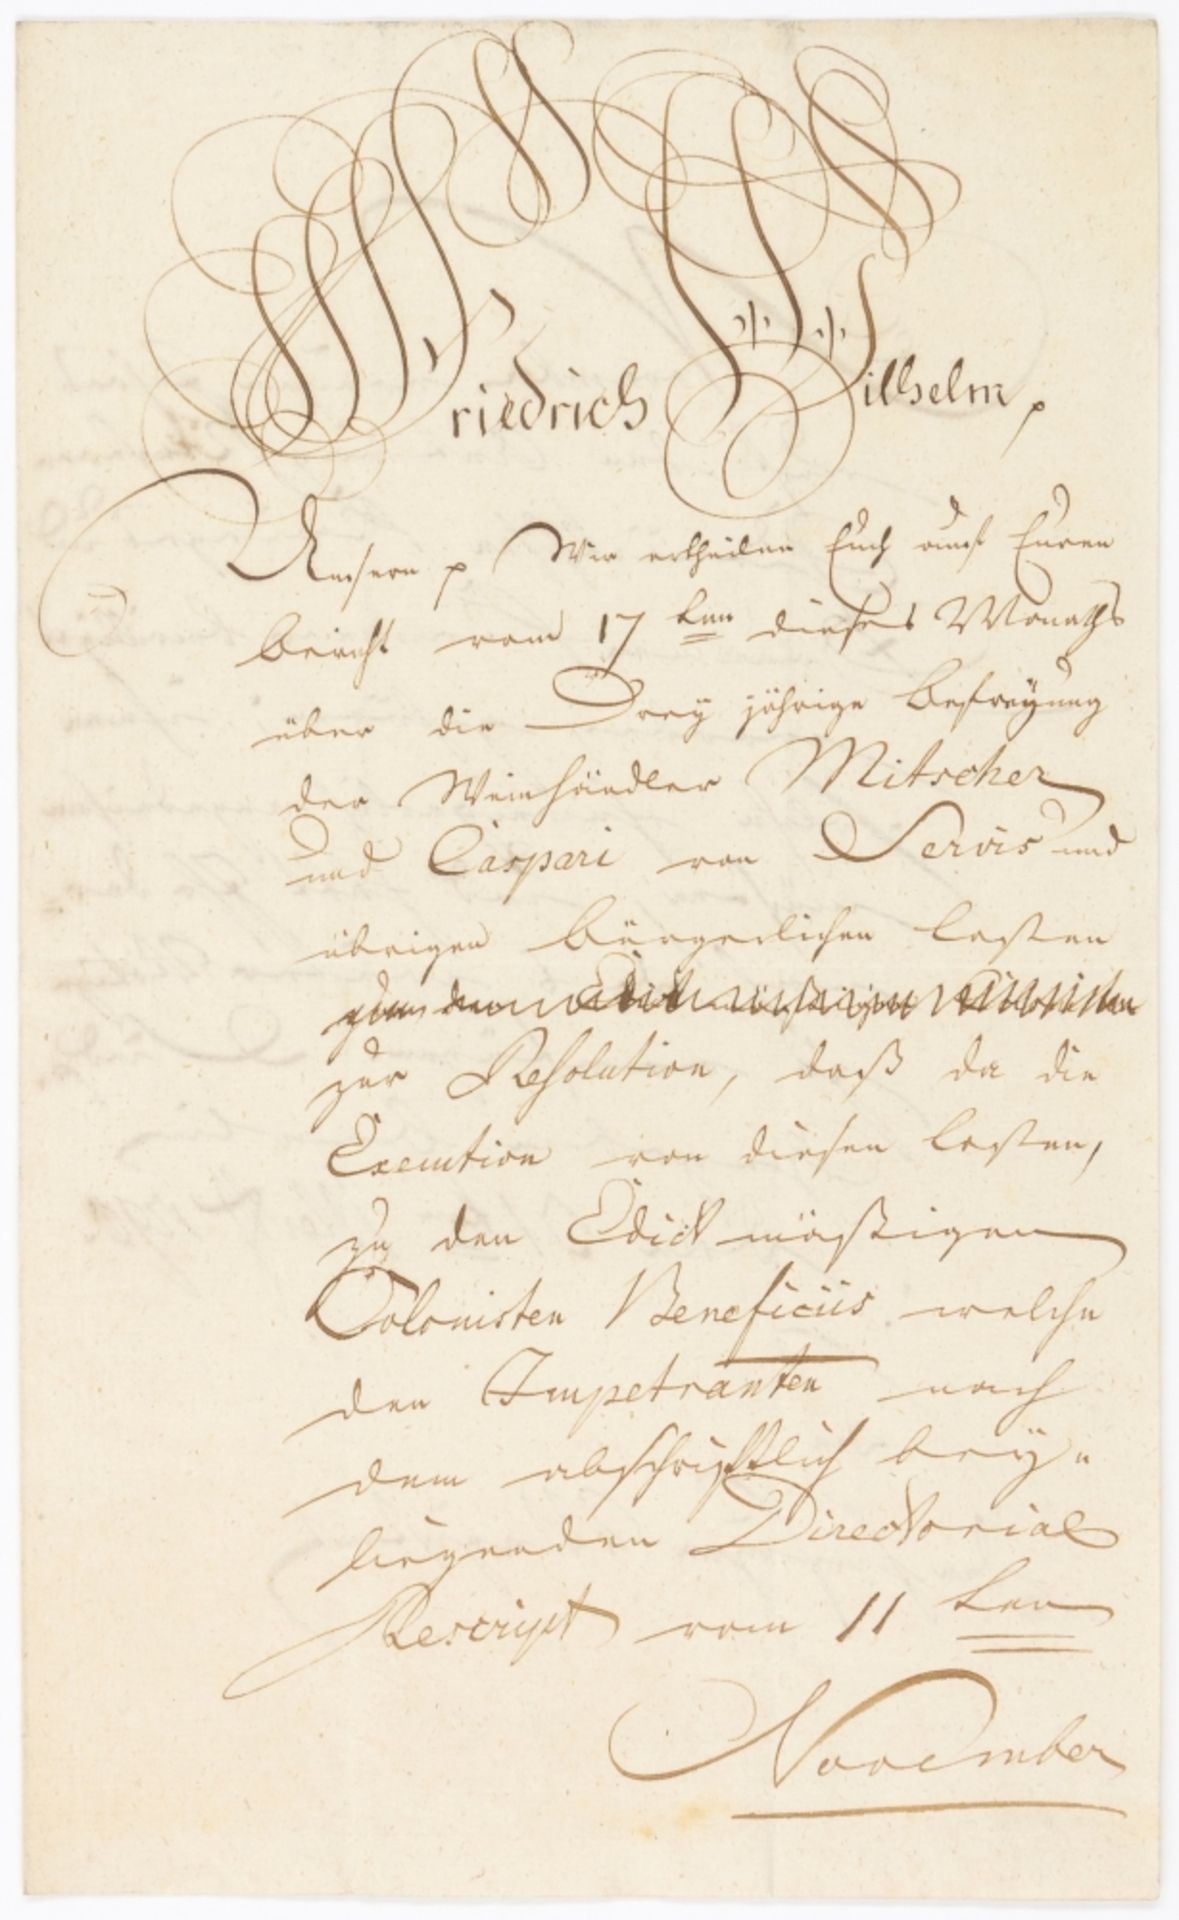 Friedrich Wilhelm p
Unsern p Wir ertheilen Euch auf Euren
bericht vom 17 ten dieses Monaths
über die Drey jährige befreyung
der Weinhändler Mitscher
und Caspari von Servis und
übrigen bürgerlichen lasten
zu den Edict mäßigen
zur Resolution, daß da die
Exemtion von diesen lasten,
zu den Edict mäßigen
Colonisten Beneficiis welche
den Impetranten nach
dem abschriftlich bey-
liegenden Directorial
Rescript vom 11 ten
November